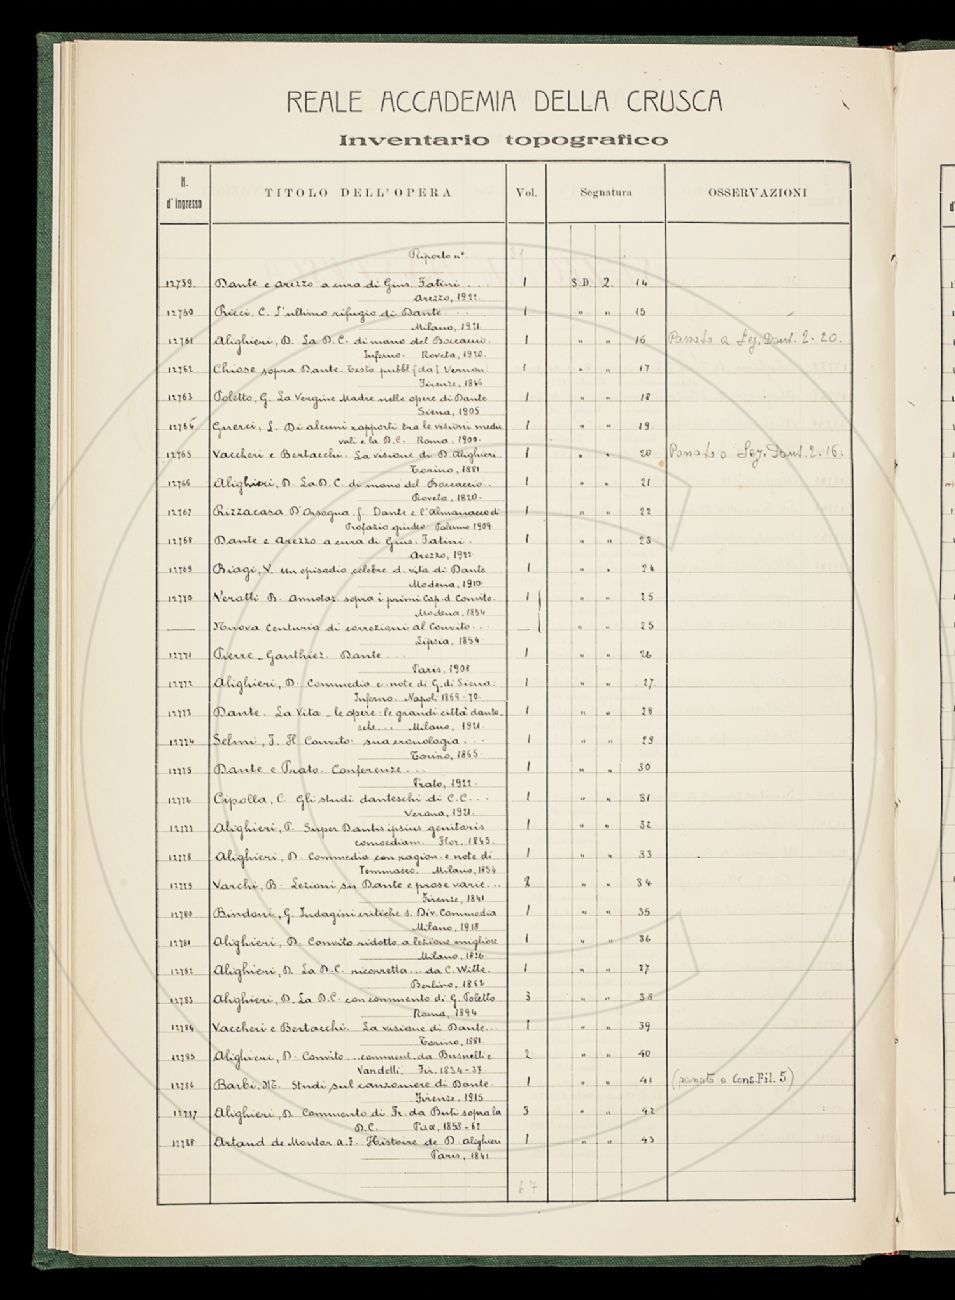 REALE ACCADEMIA DELLA CRUSCA
Inventario topografico
N. d'ingresso TITOLO DELL'OPERA Vol. Segnatura OSSERVAZIONI
Riporto nº
12759. Dante e Arezzo a cura di Gius. Fatini . . . 1 S.D. 2. 14
Arezzo, 1922
12760 Ricci. C. L'ultimo rifugio di Dante . . 1 " " 15
Milano, 1921
12761 Alighieri, D. La D.C. di mano del Boccaccio. 1 " " 16 Passato a Sez. Dant. 2. 20.
Inferno. Roveta, 1920.
12762 Chiose sopra Dante. Testo pubbl [da] Vernon. 1 " " 17
Firenze, 1846
12763 Poletto, G. La Vergine Madre nelle opere di Dante 1 " " 18
Siena, 1905
12764 Guerci, L. Di alcuni rapporti tra le visioni medie 1 " " 19
vali e la D.C. Roma, 1909.
12765 Vaccheri e Bertacchi. La visione di D. Alighieri. 1 " " 20 Passato a Sez. Dant. 2. 16.
Torino, 1881
12766 Alighieri, D. La D.C. di mano del Boccaccio. . 1 " " 21
Roveta, 1820.
12767 Rizzacasa D'Orsogna. f. Dante e l'Almanacco di 1 " " 22
Profazio giudeo Palermo 1909.
12768 Dante e Arezzo a cura di Gius. Fatini. 1 " " 23
Arezzo, 1922.
12769 Biagi, V. Un episodio celebre d. vita di Dante 1 " " 24
Modena, 1910.
12770 Veratti B. Annotaz. sopra i primi cap. d. Convito. 1 " " 25
Modena, 1854
Nuova Centuria di correzioni al Convito. . . " " 25
Lipsia, 1854.
12771 Pierre-Gauthiez. Dante . . . 1 " " 26
Paris, 1908
12772 Alighieri, D. Commedia c. note di G. di Siena. 1 " " 27.
Inferno. Napoli 1869-70.
12773 Dante. La Vita - le opere: le grandi città dante- 1 " " 28
sche... Milano, 1921.
12774 Selmi, F. Il Convito. sua cronologia . . . 1 " " 29
Torino, 1865
12775 Dante e Prato. Conferenze . . . 1 " " 30
Prato, 1922.
12776 Cipolla, C. Gli studi danteschi di C.C. . . 1 " " 31
Verona, 1921.
12777 Alighieri, P. Super Dantis ipsius genitoris 1 " " 32
comoediam. Flor. 1845.
12778 Alighieri, D. Commedia con ragion. e note di 1 " " 33
Tommaseo. Milano, 1854
12779 Varchi, B. Lezioni su Dante e prose varie. . . 2 " " 34
Firenze, 1841
12780 Bindoni, G. Indagini critiche s. Div. Commedia 1 " " 35
Milano, 1918
12781 Alighieri, D. Convito ridotto a lezione migliore 1 " " 36
Milano, 1826
12782 Alighieri, D. La D.C. ricorretta... da C. Witte. 1 " " 37
Berlino, 1862
12783 Alighieri, D. La D.C. con commento di G. Poletto 3 " " 38
Roma, 1894
12784 Vaccheri e Bertacchi. La visione di Dante... 1 " " 39
Torino, 1881.
12785 Alighieri, D. Convito ...comment. da Busnelli e 2 " " 40
Vandelli. Fir. 1934-37
12786 Barbi, M. Studi sul canzoniere di Dante. 1 " " 41 (passato a Cons. Fil. 5)
Firenze, 1915
12787 Alighieri, D. Commento di Fr. da Buti sopra la 3 " " 42
D.C. Pisa, 1858-62
12788 Artaud de Montor A. F. Histoire de D. Alighieri 1 " " 43
Paris, 1841
67